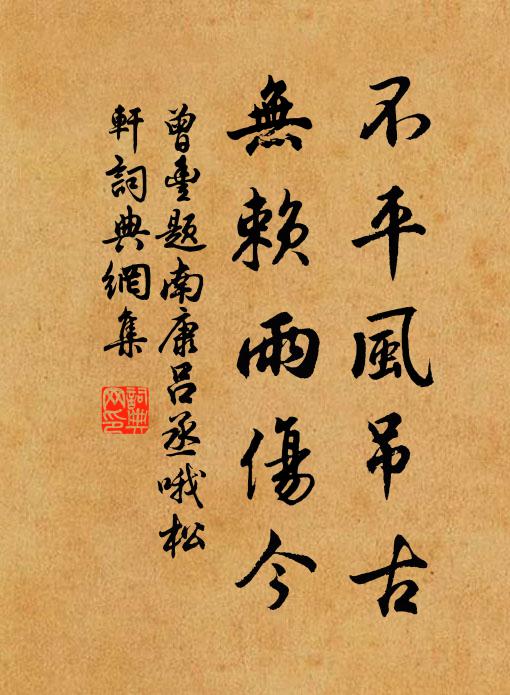 不平風吊古
無賴雨傷今
曾豐題南康呂丞哦松
軒詞典網集
詞典網印